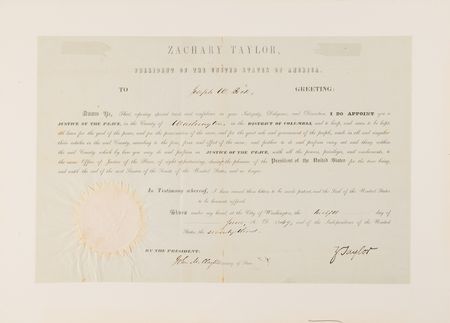 ZACHARY TAYLOR,
PRESIDENT OF THE UNITED STATES OF AMERICA,
TO Joseph W. GREETING:
Know Ye, That reposing special trust and confidence in your Integrity, Diligence, and Discretion, I DO APPOINT you
JUSTICE OF THE PEACE, in the County of Washington, in the DISTRICT OF COLUMBIA and to keep, and cause to be kept
all laws for the good of the peace, and for the preservation of the same, and for the good rule and government of the people, made in all and singular
their articles in the said County, according to the form, force and effect of the same; and further to do and perform every act and thing within
the said County which by law you may do and perform as JUSTICE OF THE PEACE, with all the powers, privileges, and emoluments, to
the same Office of Justice of the Peace, of right appertaining, during the pleasure of the President of the United States for the time being,
and until the end of the next Session of the Senate of the United States, and no longer.
In Testimony whereof, I have caused these letters to be made patent, and the Seal of the United States
to be hereunto affixed.
Given under my hand, at the City of Washington, the day of
June, A. D. 1849, and of the Independence of the United
States, the seventy third.
BY THE PRESIDENT:
Z Taylor
John M. Clayton Secretary of State